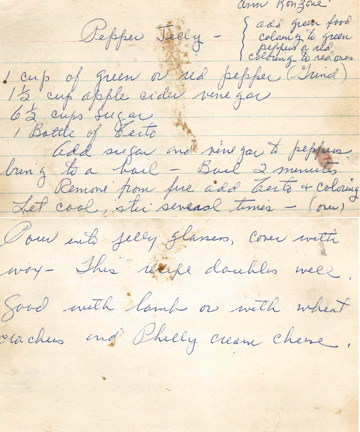 Ann Ronzone
Pepper Jelly -
{ add green food
coloring to green
peppers or red
coloring to red ones
1 cup of green or red pepper (Grind)
1½ cup apple cider vinegar
6½ cups sugar
1 Bottle of Certo
Add sugar and vinegar to peppers
bring to a boil - Boil 2 minutes
Remove from fire add Certo & coloring
Let cool, stir several times - (over)
Pour into jelly glasses, cover with
wax - This recipe doubles well.
Good with lamb or with wheat
crackers and Philly cream cheese.